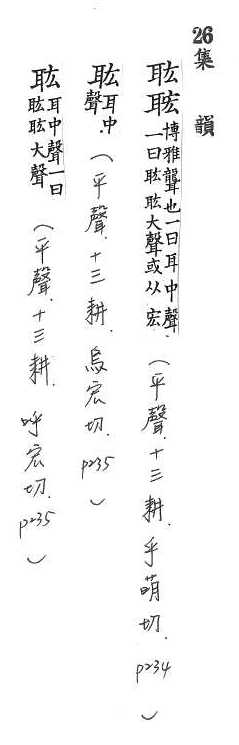 26集 韻
耾 博雅聾也一曰耳中聲.一曰耾耾大聲或从宏（平聲.十三耕.乎萌切.p234）
耾 耳中.聲（平聲.十三耕.烏宏切.p235）
耾 耳中聲一曰耾耾大聲（平聲.十三耕.呼宏切.p235）